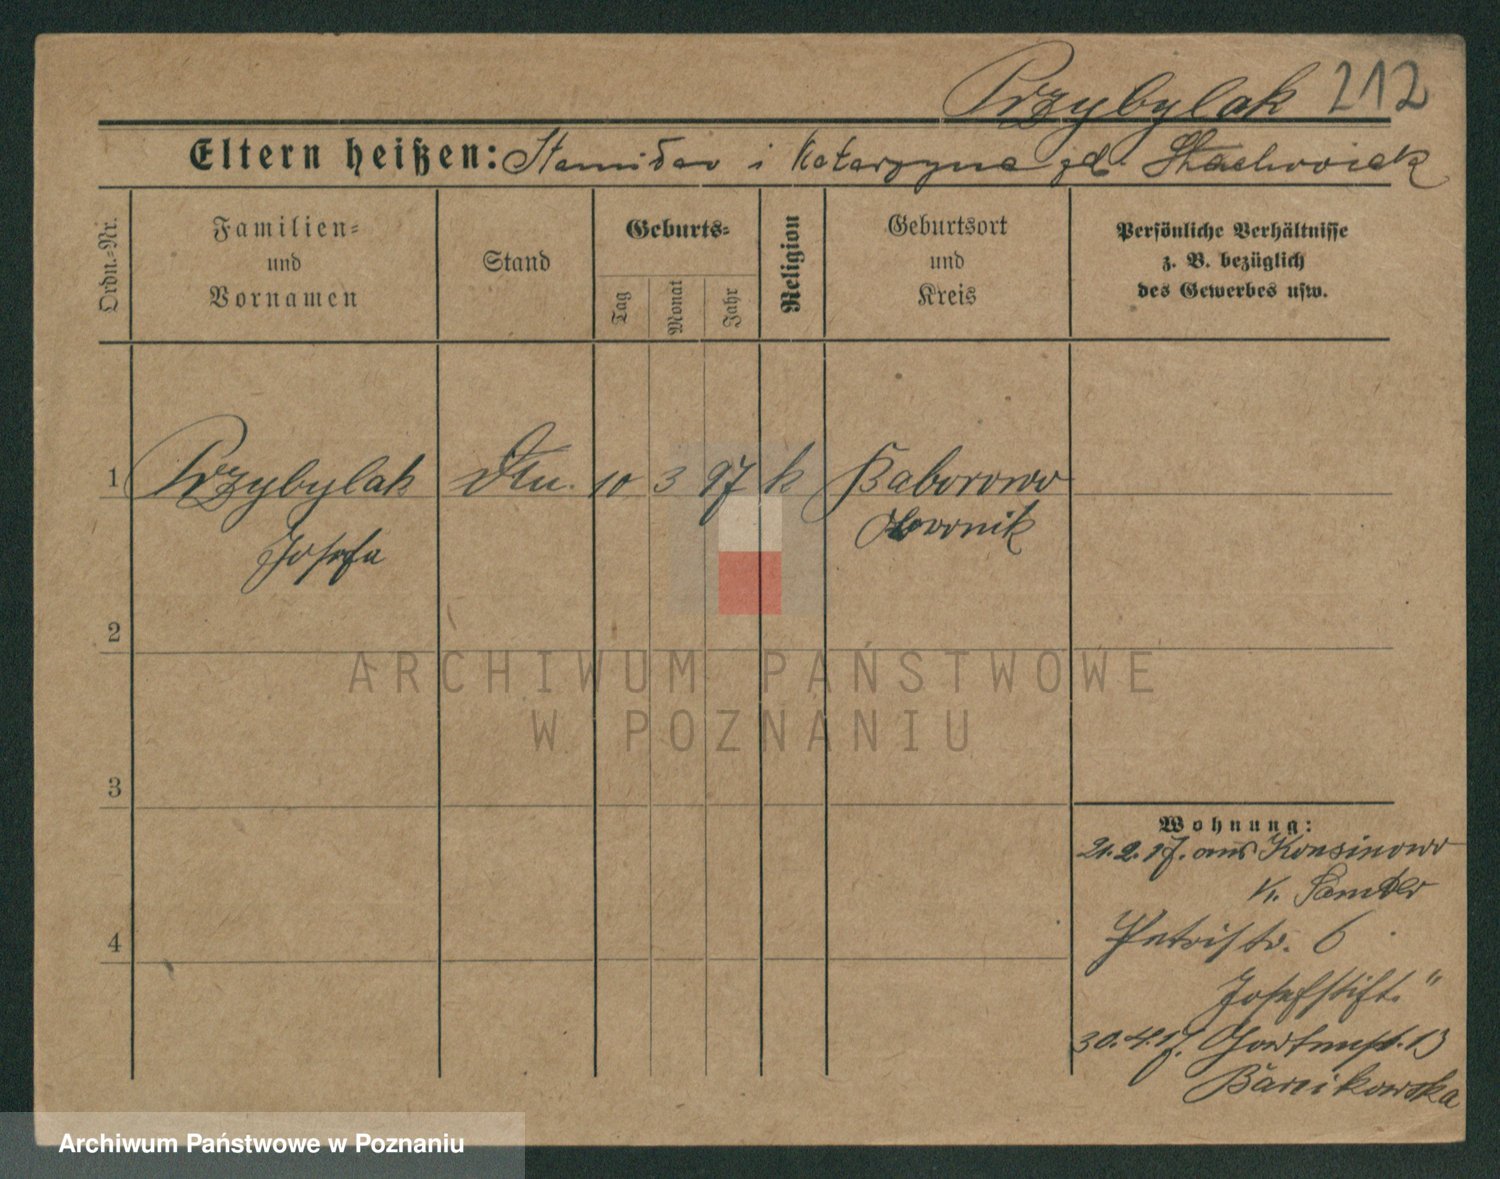 Przybylak 212
Eltern heißen: Stanisław i Katarzyna zd. Stachowiak
Ordn.-Nr.
Familien-
und
Vornamen
Stand
Geburts-
Tag
Monat
Jahr
Religion
Geburtsort
und
Kreis
Persönliche Verhältnisse
z. B. bezüglich
des Gewerbes usw.
1 Przybylak 10 3 97 k Baborowo
Josefa
2
3
4
Wohnung:
21.2.17. aus
Petristr. 6
Josefstift."
30.4.17. 13
Barcikowska
ARCHIWUM PAŃSTWOWE
W POZNANIU
Archiwum Państwowe w Poznaniu